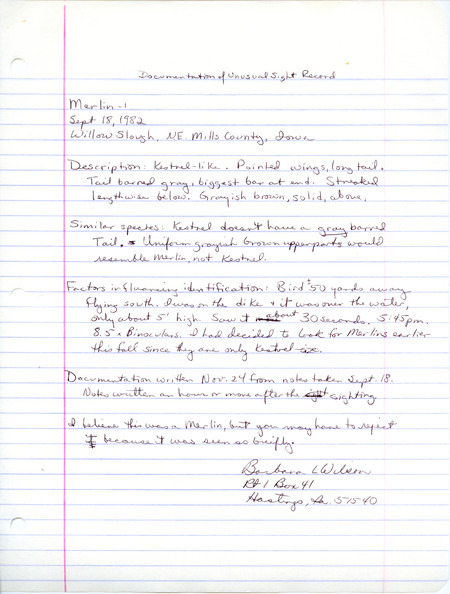 Documentation of Unusual Sight Record
Merlin-1
Sept 18, 1982
Willow Slough, NE. Mills County, Iowa
Description: Kestrel-like. Pointed wings, long tail.
Tail barred gray, biggest bar at end. Streaked
lengthwise below. Grayish brown, solid, above.
Similar species: Kestrel doesn't have a gray barred
Tail. Uniform grayish brown upperparts would
resemble Merlin, not Kestrel.
Factors influencing identification: Bird 50 yards away
flying south. I was on the dike & it was over the water,
only about 5' high. Saw it about 30 seconds. 5:45 pm.
8.5 x Binoculars. I had decided to look for Merlins earlier
this fall since they are only Kestrel size.
Documentation written Nov. 24 from notes taken Sept. 18.
Notes written an hour or more after the sighting
I believe this was a Merlin, but you may have to reject
it because it was seen so briefly.
Barbara L Wilson
Rt 1 Box 41
Hastings, Ia. 51540